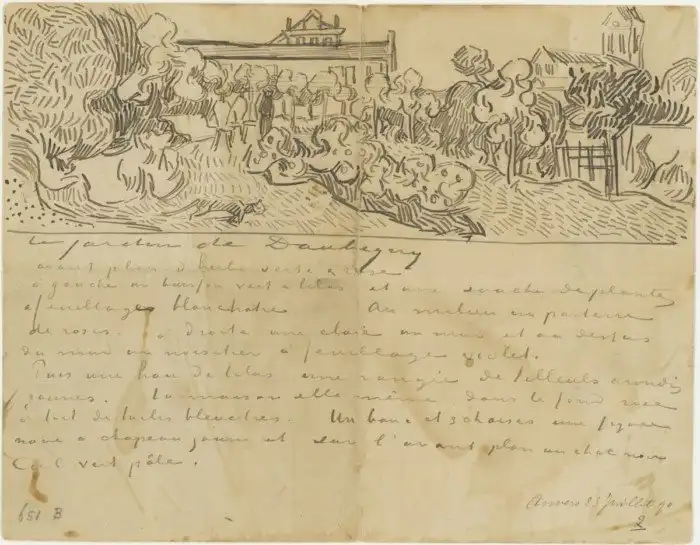 Le jardin de Daubigny
avant plan d'herbe verte & rose
à gauche un buisson vert & lilas et une souche de plantes
à feuillages blanchatre Au milieu un parterre
de roses. à droite une claie un mur et au dessus
du mur un noisetier à feuillage violet.
Puis une haie de lilas une rangée de tilleuls arrondis
jaunes. La maison elle même dans le fond rose
à toit de tuiles bleuatres. Un banc et 3 chaises une figure
noire à chapeau jaune et sur l'avant plan un chat noir
Ciel vert pâle.
Auvers 23 juillet 90
2
651 B